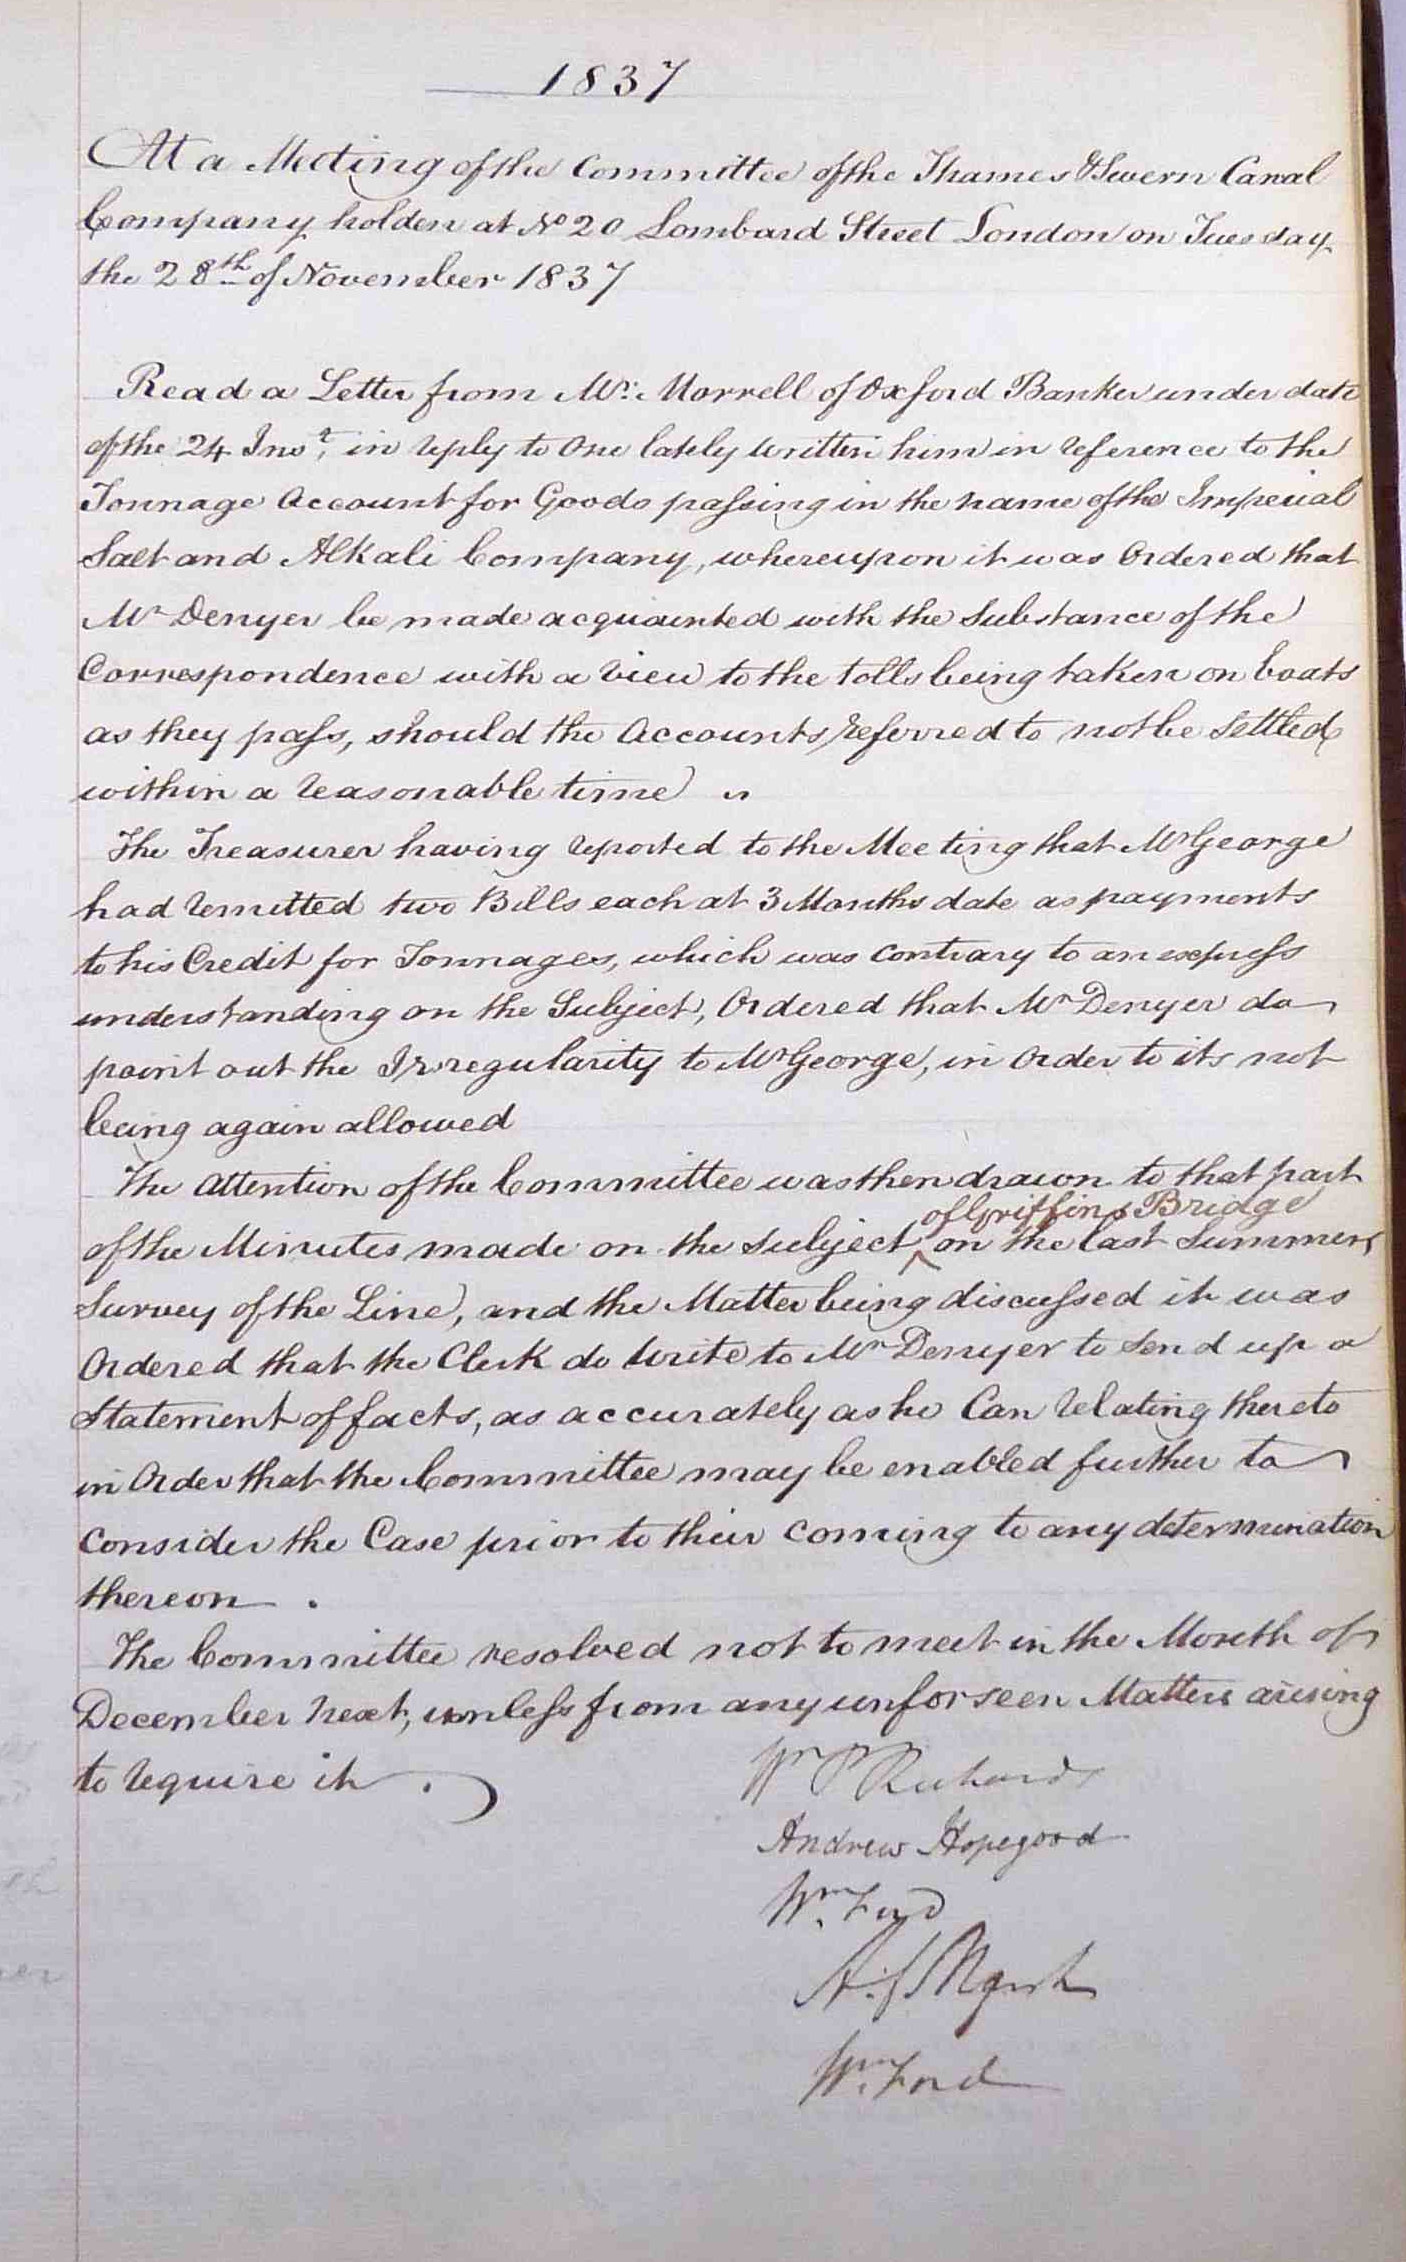 1837
At a Meeting of the Committee of the Thames & Severn Canal
Company holden at No 20 Lombard Street London on Tuesday
the 28th of November 1837
Read a Letter from Mr. Morrell of Oxford Banker under date
of the 24 Inst, in reply to One lately written him in reference to the
Tonnage Account for Goods passing in the name of the Imperial
Salt and Alkali Company, whereupon it was Ordered that
Mr Denyer be made acquainted with the Substance of the
Correspondence with a view to the tolls being taken on boats
as they pass, should the Accounts referred to not be Settled
within a reasonable time
The Treasurer having reported to the Meeting that Mr George
had remitted two Bills each at 3 Months date as payments
to his Credit for Tonnages, which was contrary to an express
understanding on the Subject, Ordered that Mr Denyer do
point out the Irregularity to Mr George, in Order to its not
being again allowed
The Attention of the Committee was then drawn to that part
of Griffins Bridge
of the Minutes made on the subject ^ on the last Summers
Survey of the Line, and the Matter being discussed it was
Ordered that the Clerk do write to Mr Denyer to Send up a
Statement of facts, as accurately as he Can relating thereto
in Order that the Committee may be enabled further to
Consider the Case prior to their coming to any determination
thereon .
The Committee resolved not to meet in the Month of
December next, unless from any unforseen Matters arising
to require it .
Wm P Richards
Andrew Hopegood
Wm. Ford
Wm. Ford